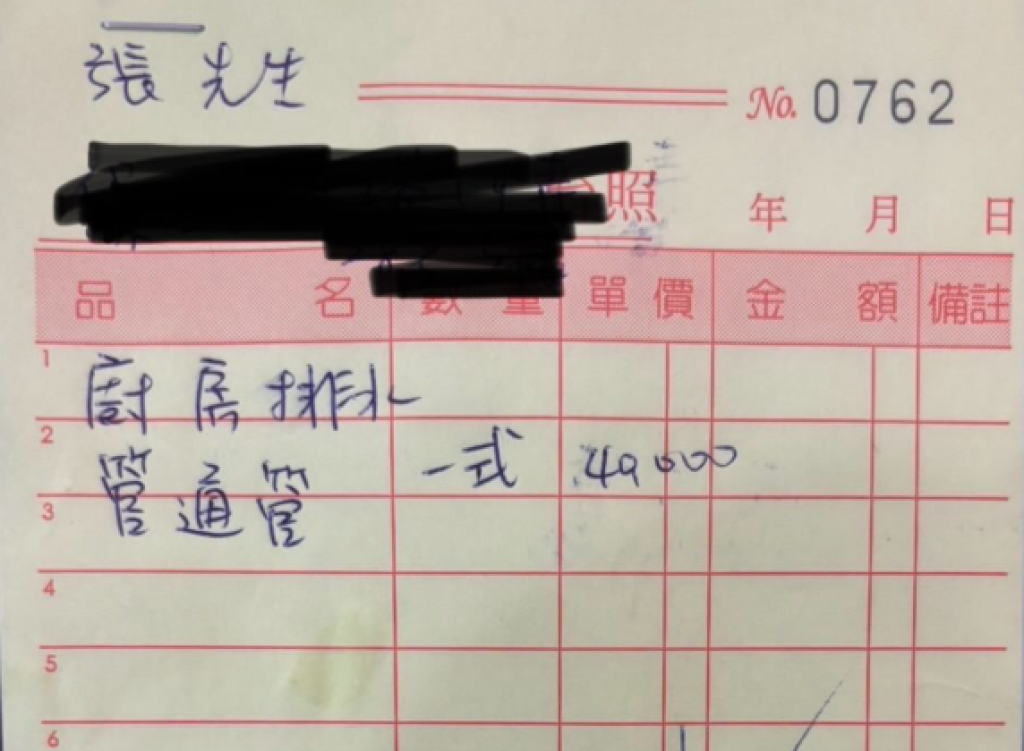 張 先生
No. 0762
台照 年 月 日
品 名 數 量 單 價 金 額 備註
1 廚房排水
2 一式 49000
管通管
3
4
5
6